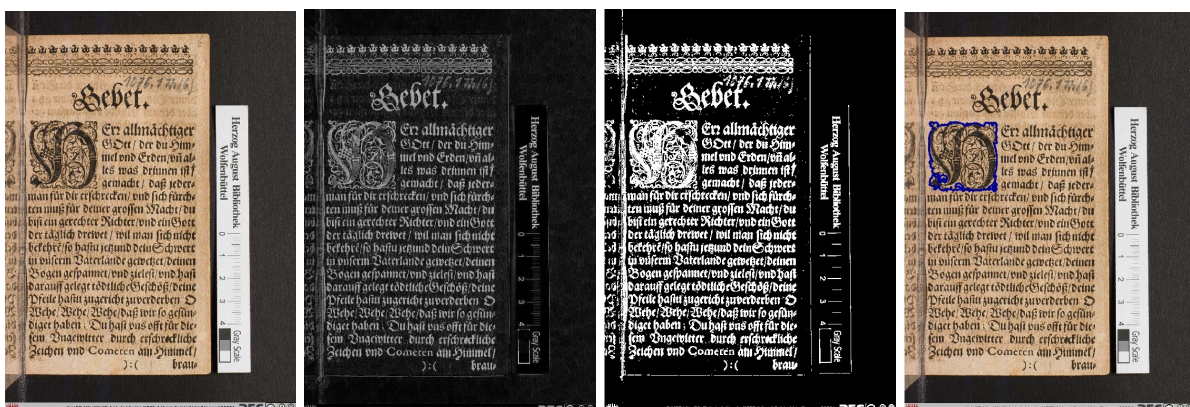 1076.1
Gebet.
HErr allmächtiger
GOtt / der du Him-
mel vnd Erden / vñ al-
les was drinnen ist /
gemacht / daß jeder-
man für dir erschrecken / vnd sich fürch-
ten muß für deiner grossen Macht / du
bist ein gerechter Richter / vnd ein Gott
der täglich drewet / wil man sich nicht
bekehrē / so hastu jetzund dein Schwert
in vnserm Vaterlande gewetzet / deinen
Bogen gespannet / vnd zielest / vnd hast
darauff gelegt tödtliche Geschöß / deine
Pfeile hastu zugericht zuverderben O
Wehe / Wehe / Wehe / daß wir so gesün-
diget haben ; Du hast vns offt für die-
sem Vngewitter durch erschreckliche
Zeichen vnd Cometen am Himmel /
):( brau-
Herzog August Bibliothek
Wolfenbüttel
0 1 2 3 4
Gray Scale